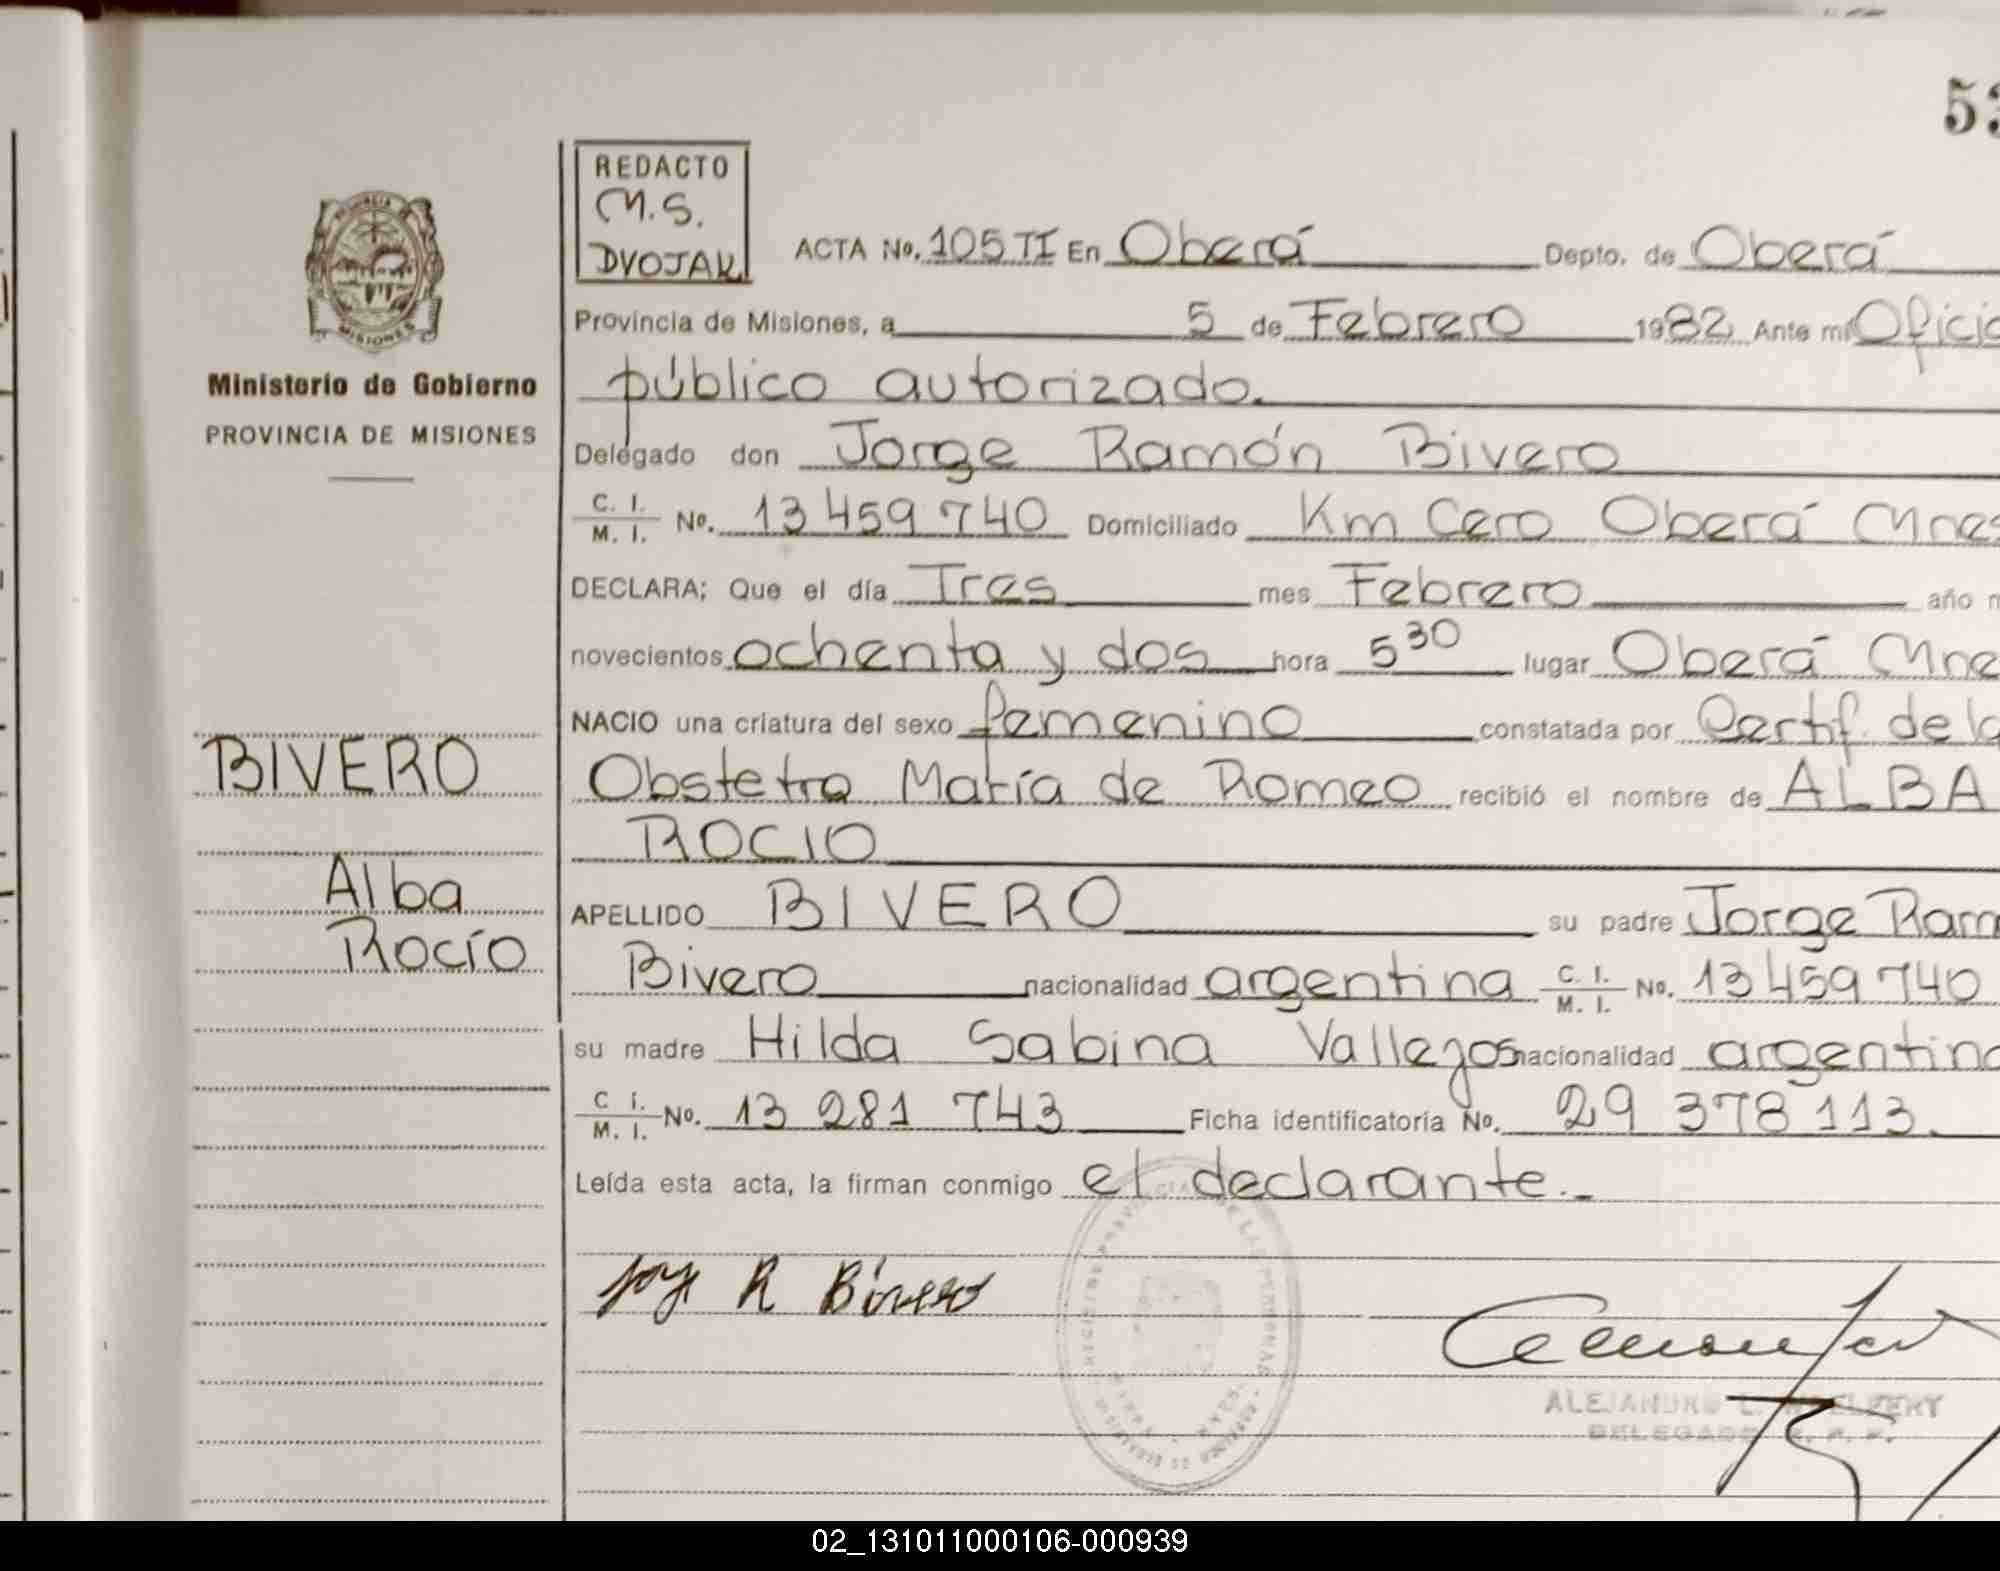 53
REDACTO
M.S.
DVOJAK
ACTA No. 105 TI En Oberá Depto. de Oberá
Provincia de Misiones, a 5 de Febrero 1982 Ante mi Oficia
público autorizado.
Delegado don Jorge Ramón Bivero
C. I. / M. I. No. 13 459 740 Domiciliado Km Cero Oberá Mnes
DECLARA; Que el día Tres mes Febrero año m
novecientos ochenta y dos hora 5 30 lugar Oberá Mne
NACIO una criatura del sexo femenino constatada por Certif. de la
Obstetra María de Romeo recibió el nombre de ALBA
ROCIO
APELLIDO BIVERO su padre Jorge Ram
Bivero nacionalidad argentina C. I. / M. I. No. 13 459 740
su madre Hilda Sabina Vallejos nacionalidad argentina
C I. / M. I. No. 13 281 743 Ficha identificatoria No. 29 378 113.
Leída esta acta, la firman conmigo el declarante.-
Ministerio de Gobierno
PROVINCIA DE MISIONES
BIVERO
Alba
Rocío
R Bivero
ALEJANDRO L.
DELEGADO R. P. P.
02_131011000106-000939